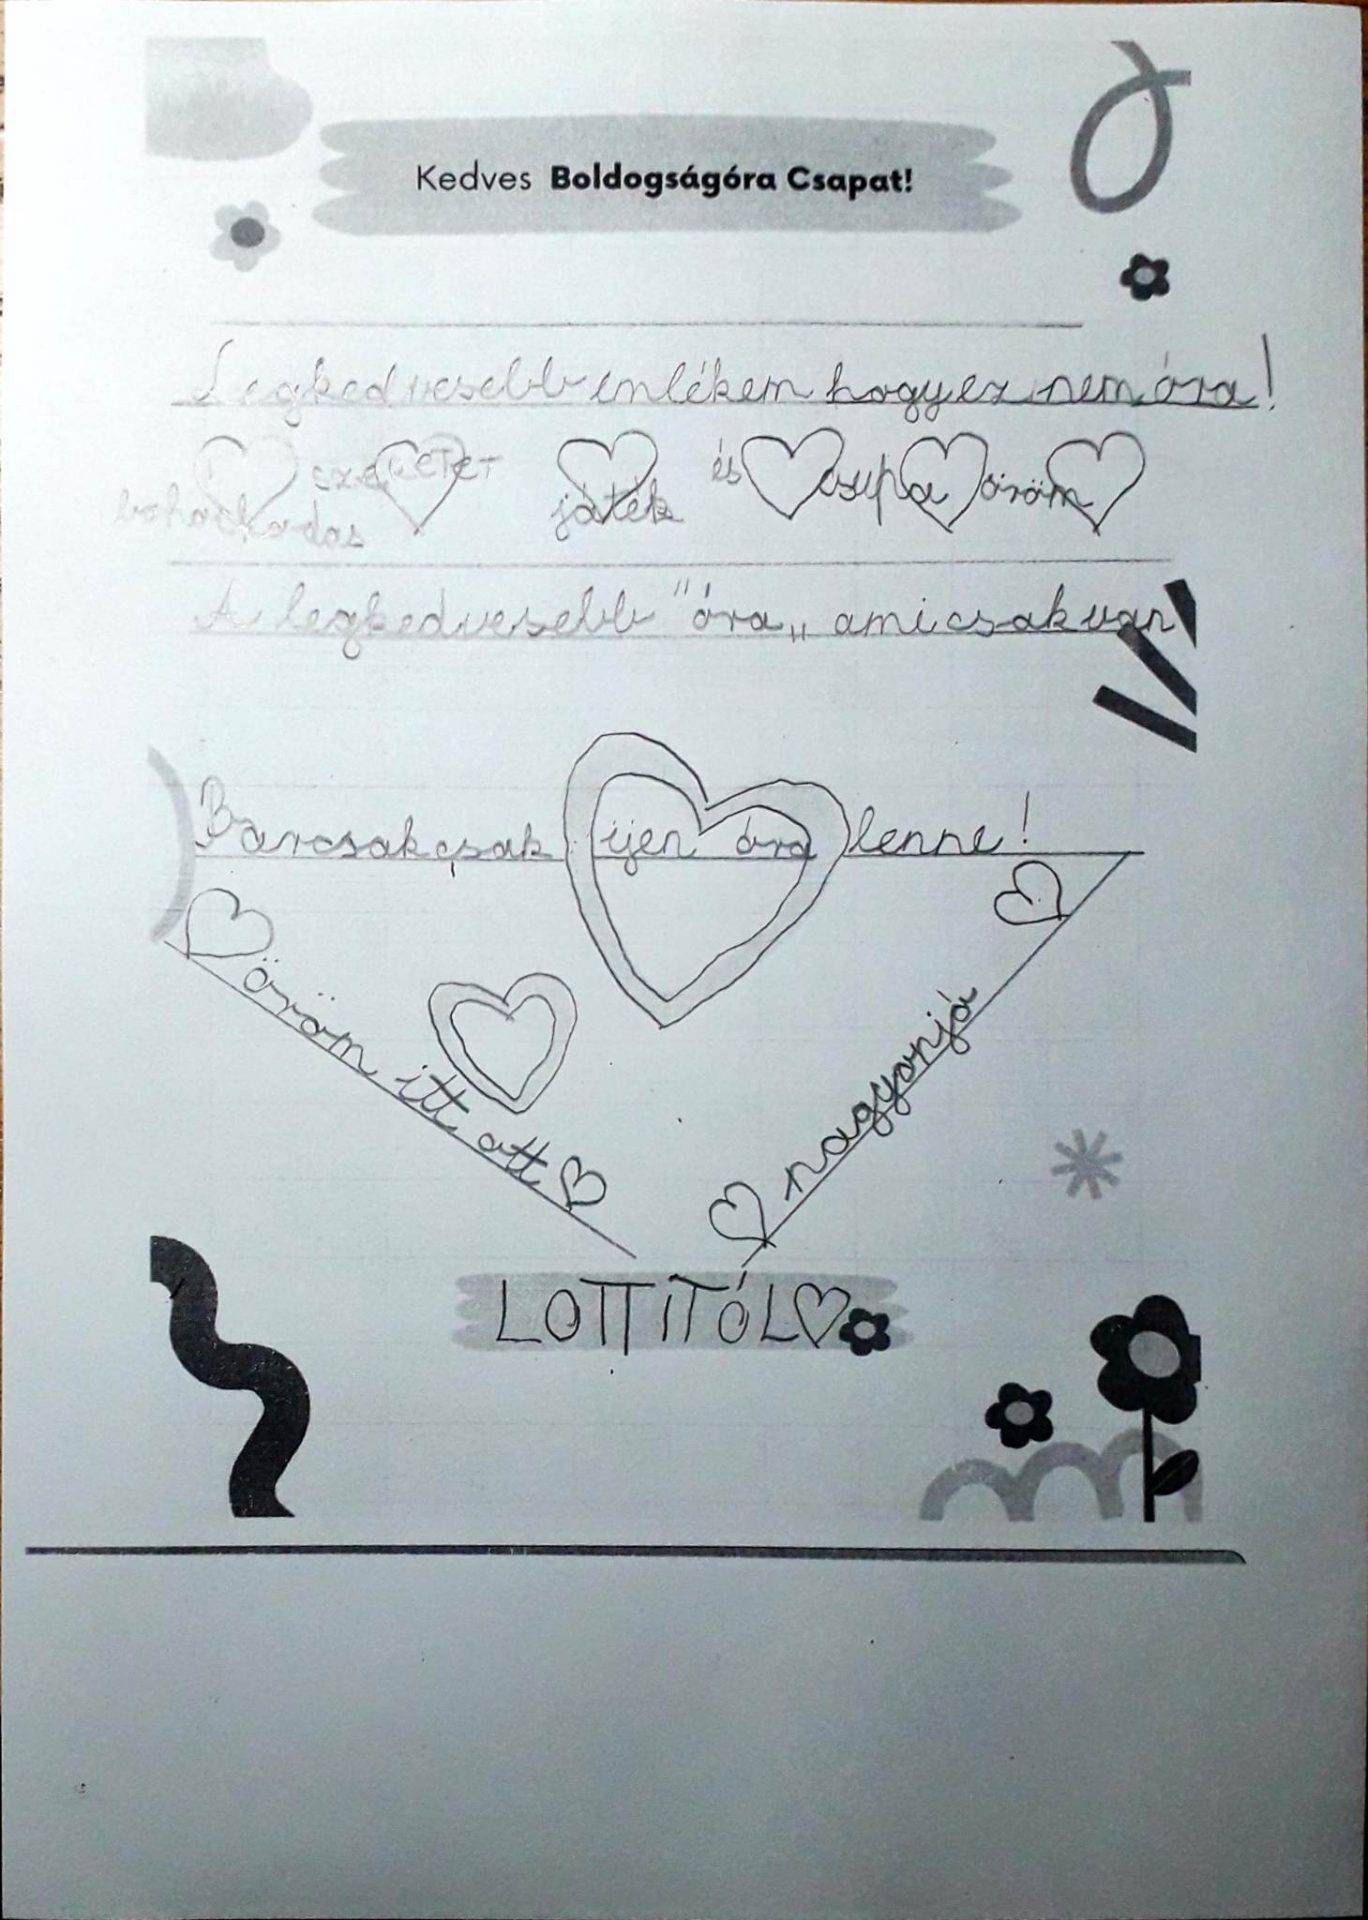 Kedves Boldogságóra Csapat!
Legkedvesebb emlékem hogy ez nem óra!
szeretet játék és csupa öröm
bohockodas
A legkedvesebb "óra„ ami csak van
Barcsak csak ijen óra lenne!
öröm itt ott
nagyon jó
LOTTITÓL